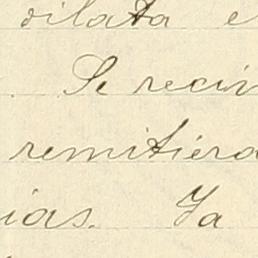 dilata e
Se reci
remitiera
ias. Ya